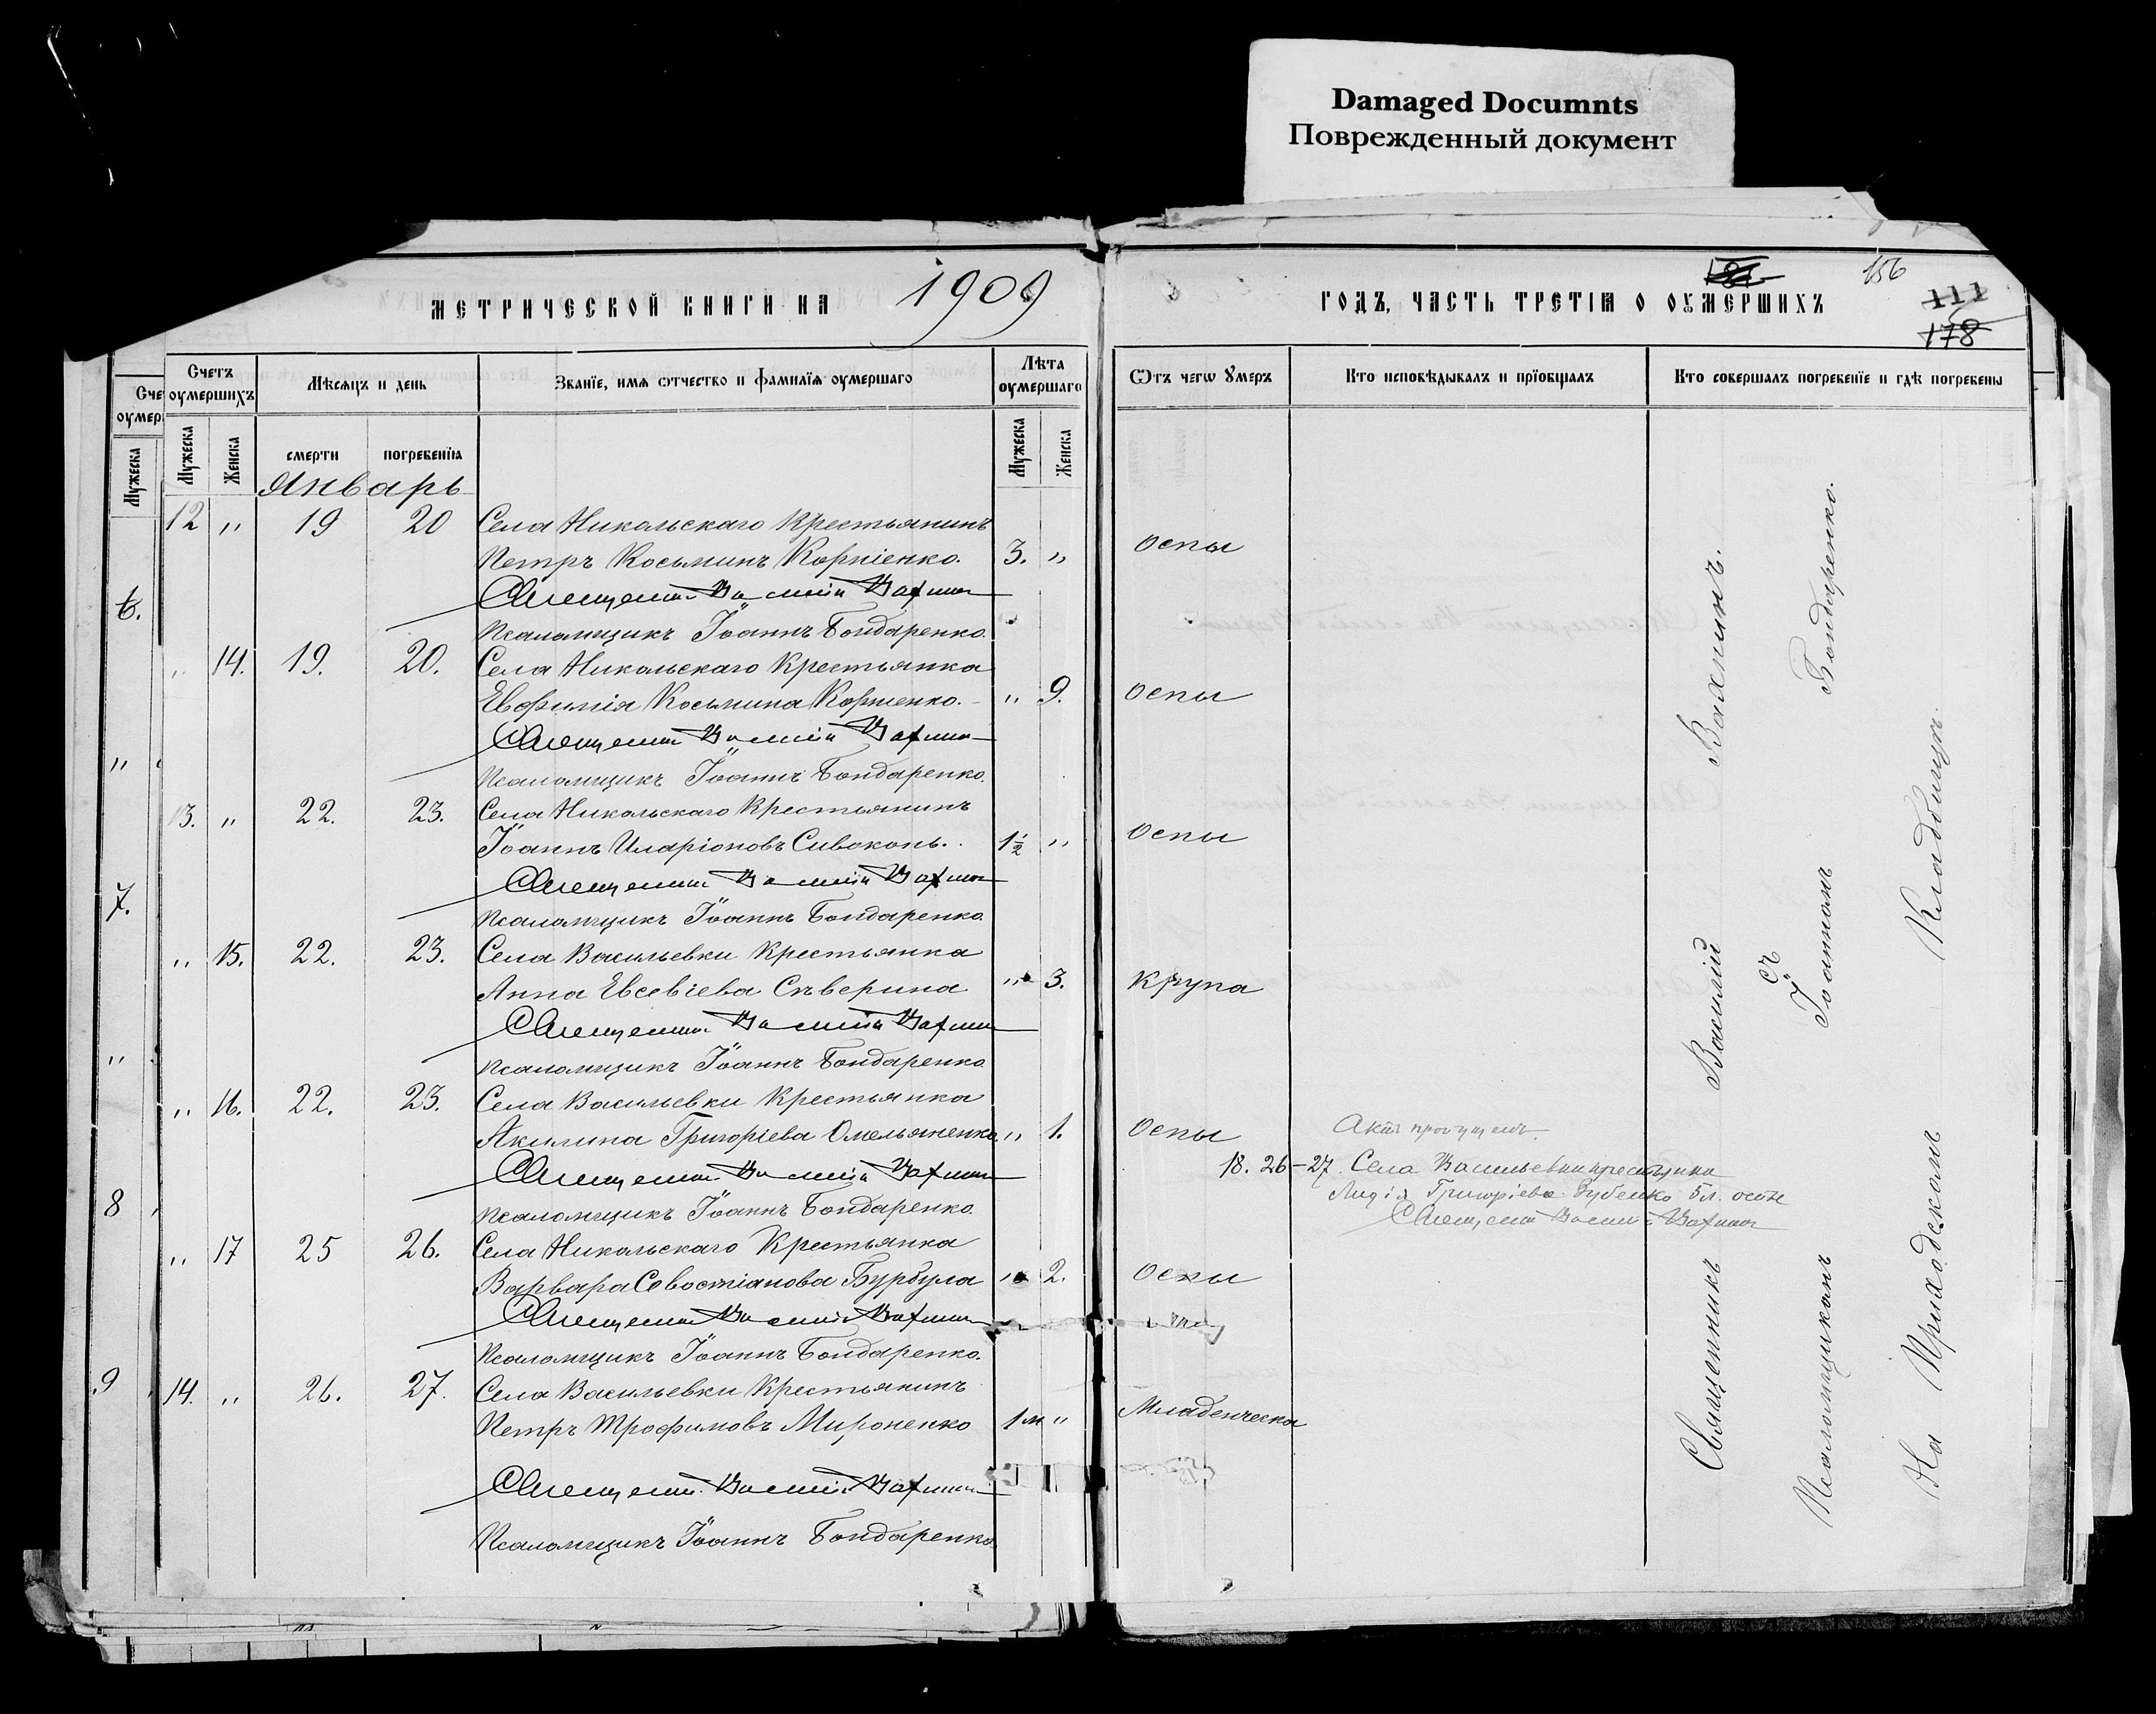 Damaged Documnts
Поврежденный документ
МЕТРИЧЕСКОЙ КНИГИ НА 1909
ГОДЪ, ЧАСТЬ ТРЕТІѦ О ОУМЕРШИХЪ
156
111
178
Счетъ оумершихъ
Мѣсѧцъ и день
Званїе, имѧ ѡтчество и фамилїѧ оумершаго
Лѣта оумершаго
Ѿтъ чегѡ Ꙋмеръ
Кто исповѣдывалъ и прїобщалъ
Кто совершалъ погребенїе и гдѣ погребены
Мужеска
Женска
смерти
погребенїѧ
Мужеска
Женска
Январь
12 " 19 20 Села Никольскаго Крестьянинъ
Петръ Косьминъ Корніенко. 3. " Оспы
Священникъ Василій Вахнинъ
Псаломщикъ Іоаннъ Бондаренко.
" 14. 19. 20. Села Никольскаго Крестьянка
Евфимія Косьмина Корніенко. " 9. Оспы
Священникъ Василій Вахнинъ
Псаломщикъ Іоаннъ Бондаренко.
13. " 22. 23. Села Никольскаго Крестьянинъ
Іоаннъ Иларіоновъ Сивоконь. 1½ " Оспы
Священникъ Василій Вахнинъ
Псаломщикъ Іоаннъ Бондаренко.
" 15. 22. 23. Села Васильевки Крестьянка
Анна Евсевіева Сѣверина " 3. Крупа
Священникъ Василій Вахнинъ
Псаломщикъ Іоаннъ Бондаренко
" 16. 22. 23. Села Васильевки Крестьянка
Акилина Григоріева Омельяненко " 1. Оспы
Священникъ Василій Вахнинъ
Псаломщикъ Іоаннъ Бондаренко.
Актъ пропущенъ.
18. 26-27 Села Васильевки крестьянка
Лидія Григоріева Зубенко 5 л. оспы
Священникъ Василій Вахнинъ
" 17 25 26. Села Никольскаго Крестьянка
Варвара Севостіанова Бурбула " 2. Оспы
Священникъ Василій Вахнинъ
Псаломщикъ Іоаннъ Бондаренко.
14. " 26. 27. Села Васильевки Крестьянинъ
Петръ Трофимовъ Мироненко 1 м " Младенческа
Священникъ Василій Вахнинъ
Псаломщикъ Іоаннъ Бондаренко
Священникъ Василій Вахнинъ.
съ
Псаломщикомъ Іоанномъ Бондаренко.
На Приходскомъ Кладбищѣ.
Мужеска
6.
"
7.
"
8
9